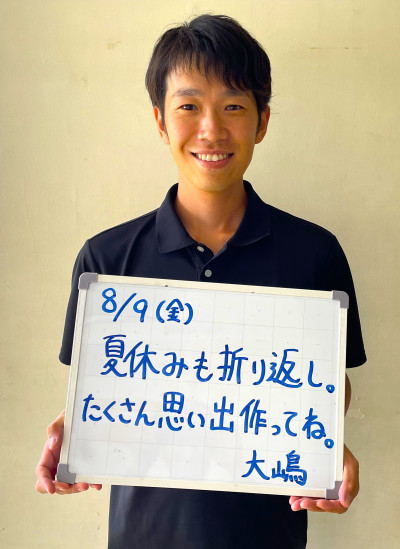 8/9(金)
夏休みも折り返し。
たくさん思い出作ってね。
大嶋